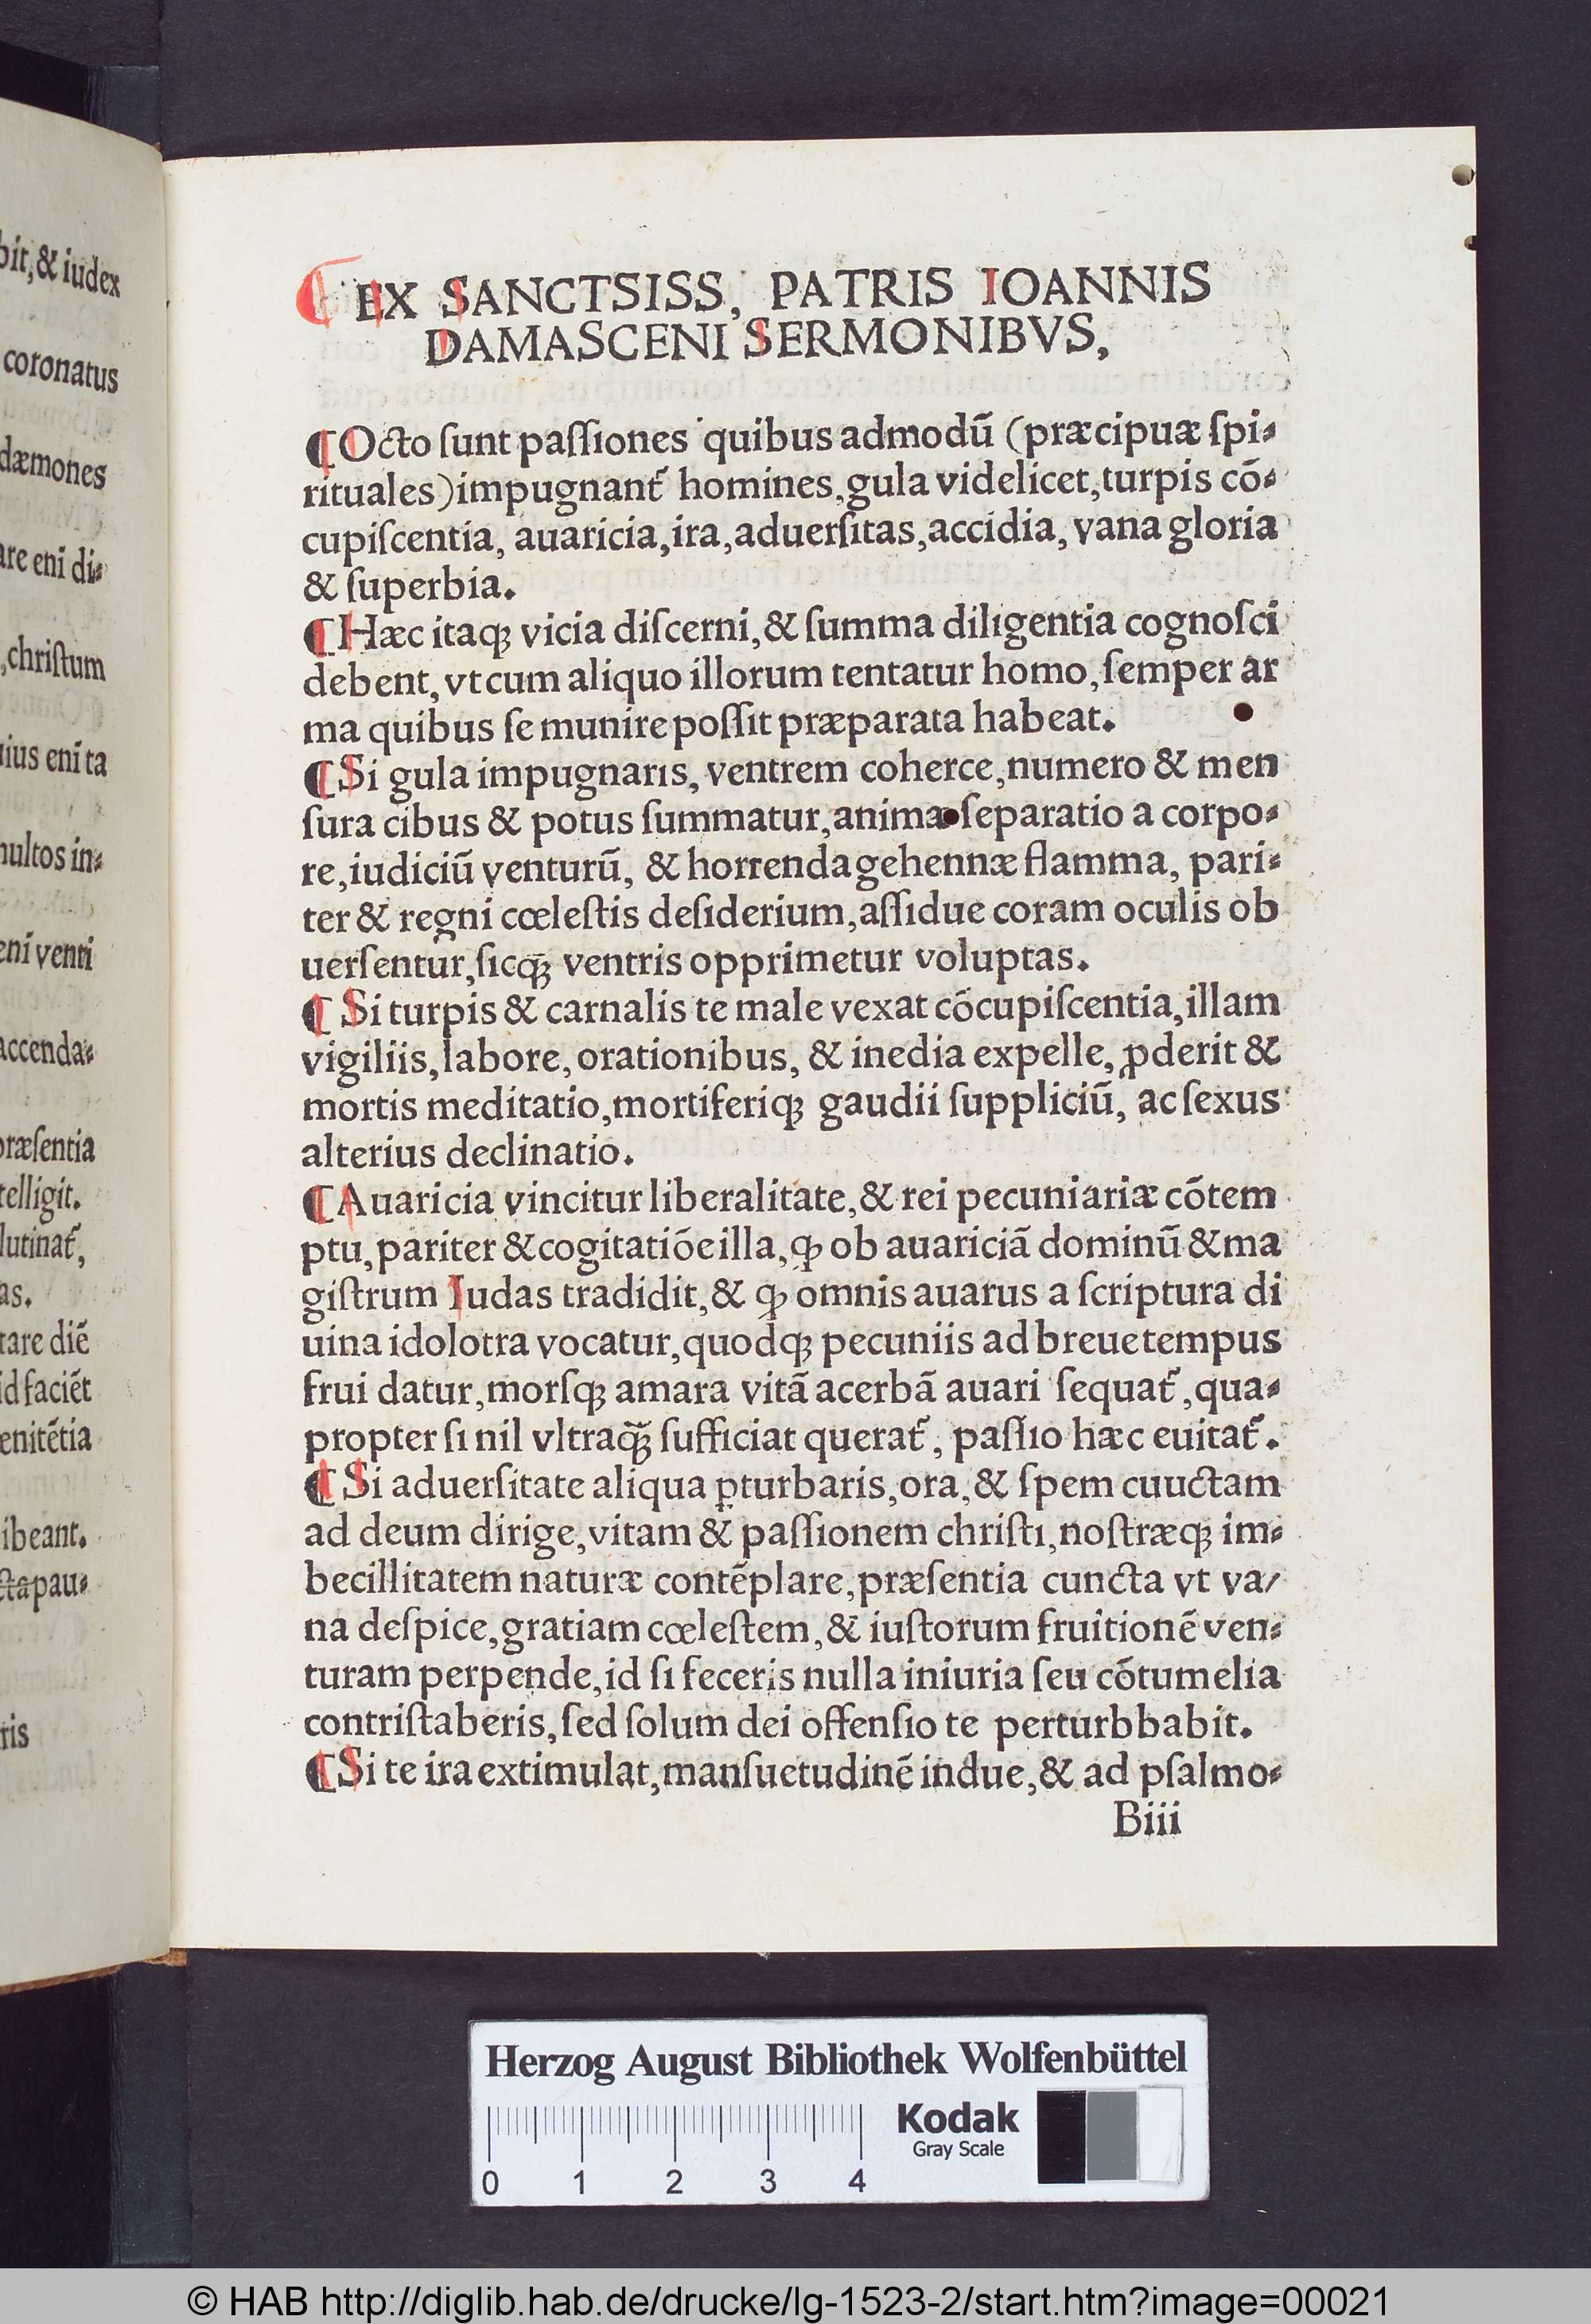 bit, & iudex
coronatus
dæmones
are eni di⸗
, chriſtum
uius enī ta
multos in⸗
eni venti
accenda⸗
præſentia
telligit.
lutinat᷑,
as.
tare diē
id faciēt
enitētia
ibeant.
ctapau⸗
ris
¶ EX SANCTSISS, PATRIS IOANNIS
DAMASCENI SERMONIBVS,
¶ Octo ſunt paſſiones quibus admodū (præcipuæ ſpi⸗
rituales) impugnant᷑ homines, gula videlicet, turpis cō⸗
cupiſcentia, auaricia, ira, aduerſitas, accidia, vana gloria
& ſuperbia.
¶ Hæc itaqꝫ vicia diſcerni, & ſumma diligentia cognoſci
debent, vt cum aliquo illorum tentatur homo, ſemper ar
ma quibus ſe munire poſſit præparata habeat.
¶ Si gula impugnaris, ventrem coherce, numero & men
ſura cibus & potus ſummatur, anima ſeparatio a corpo⸗
re, iudiciū venturū, & horrenda gehennæ flamma, pari⸗
ter & regni cœleſtis deſiderium, aſſidue coram oculis ob
uerſentur, ſicqꝫ ventris opprimetur voluptas.
¶ Si turpis & carnalis te male vexat cōcupiſcentia, illam
vigiliis, labore, orationibus, & inedia expelle, ꝓderit &
mortis meditatio, mortiferiqꝫ gaudii ſuppliciū, ac ſexus
alterius declinatio.
¶ Auaricia vincitur liberalitate, & rei pecuniariæ cōtem
ptu, pariter & cogitatiōe illa, ꝙ ob auariciā dominū & ma
giſtrum Iudas tradidit, & ꝙ omnis auarus a ſcriptura di
uina idolotra vocatur, quodqꝫ pecuniis ad breue tempus
frui datur, morſqꝫ amara vitā acerbā auari ſequat᷑, qua⸗
propter ſi nil vltraqꝫ̄ ſufficiat querat᷑, paſſio hæc euitat᷑.
¶ Si aduerſitate aliqua ꝑturbaris, ora, & ſpem cuuctam
ad deum dirige, vitam & paſſionem chriſti, noſtræqꝫ im⸗
becillitatem naturæ contēplare, præſentia cuncta vt va/
na deſpice, gratiam cœleſtem, & iuſtorum fruitionē ven⸗
turam perpende, id ſi feceris nulla iniuria ſeu cōtumelia
contriſtaberis, ſed ſolum dei offenſio te perturbbabit.
¶ Si te ira extimulat, manſuetudinē indue, & ad pſalmo⸗
Biii
Herzog August Bibliothek Wolfenbüttel
Kodak
Gray Scale
0 1 2 3 4
© HAB http://diglib.hab.de/drucke/lg-1523-2/start.htm?image=00021